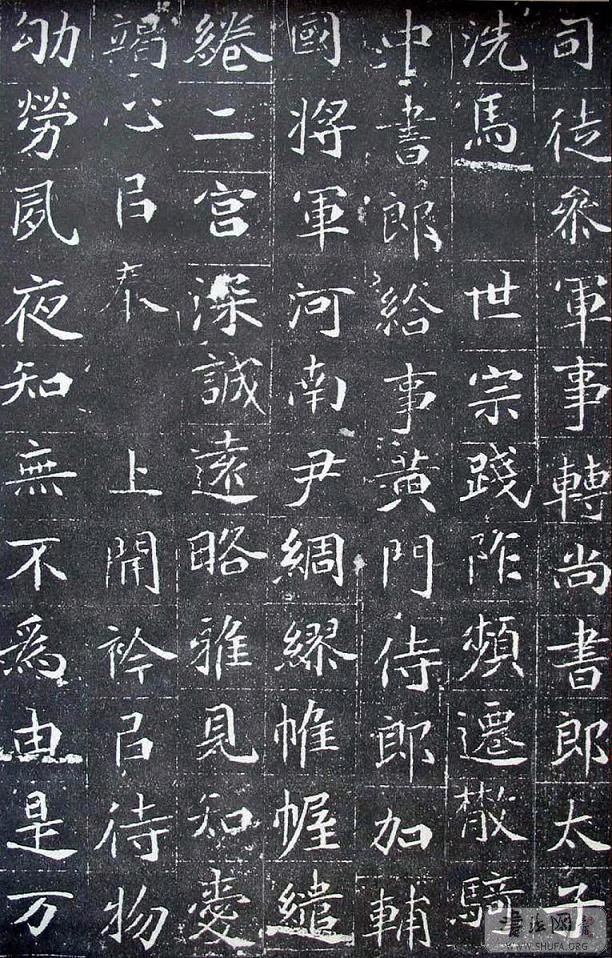 司徒参軍事轉尚書郎太子
洗馬 世宗踐阼頻遷散騎
中書郎給事黄門侍郎加輔
國將軍河南尹綢繆帷幄繾
綣二宮深誠遠略雅見知愛
竭心㠯奉 上開衿㠯待物
劬勞夙夜知無不為由是万
書法网
WWW.SHUFA.ORG